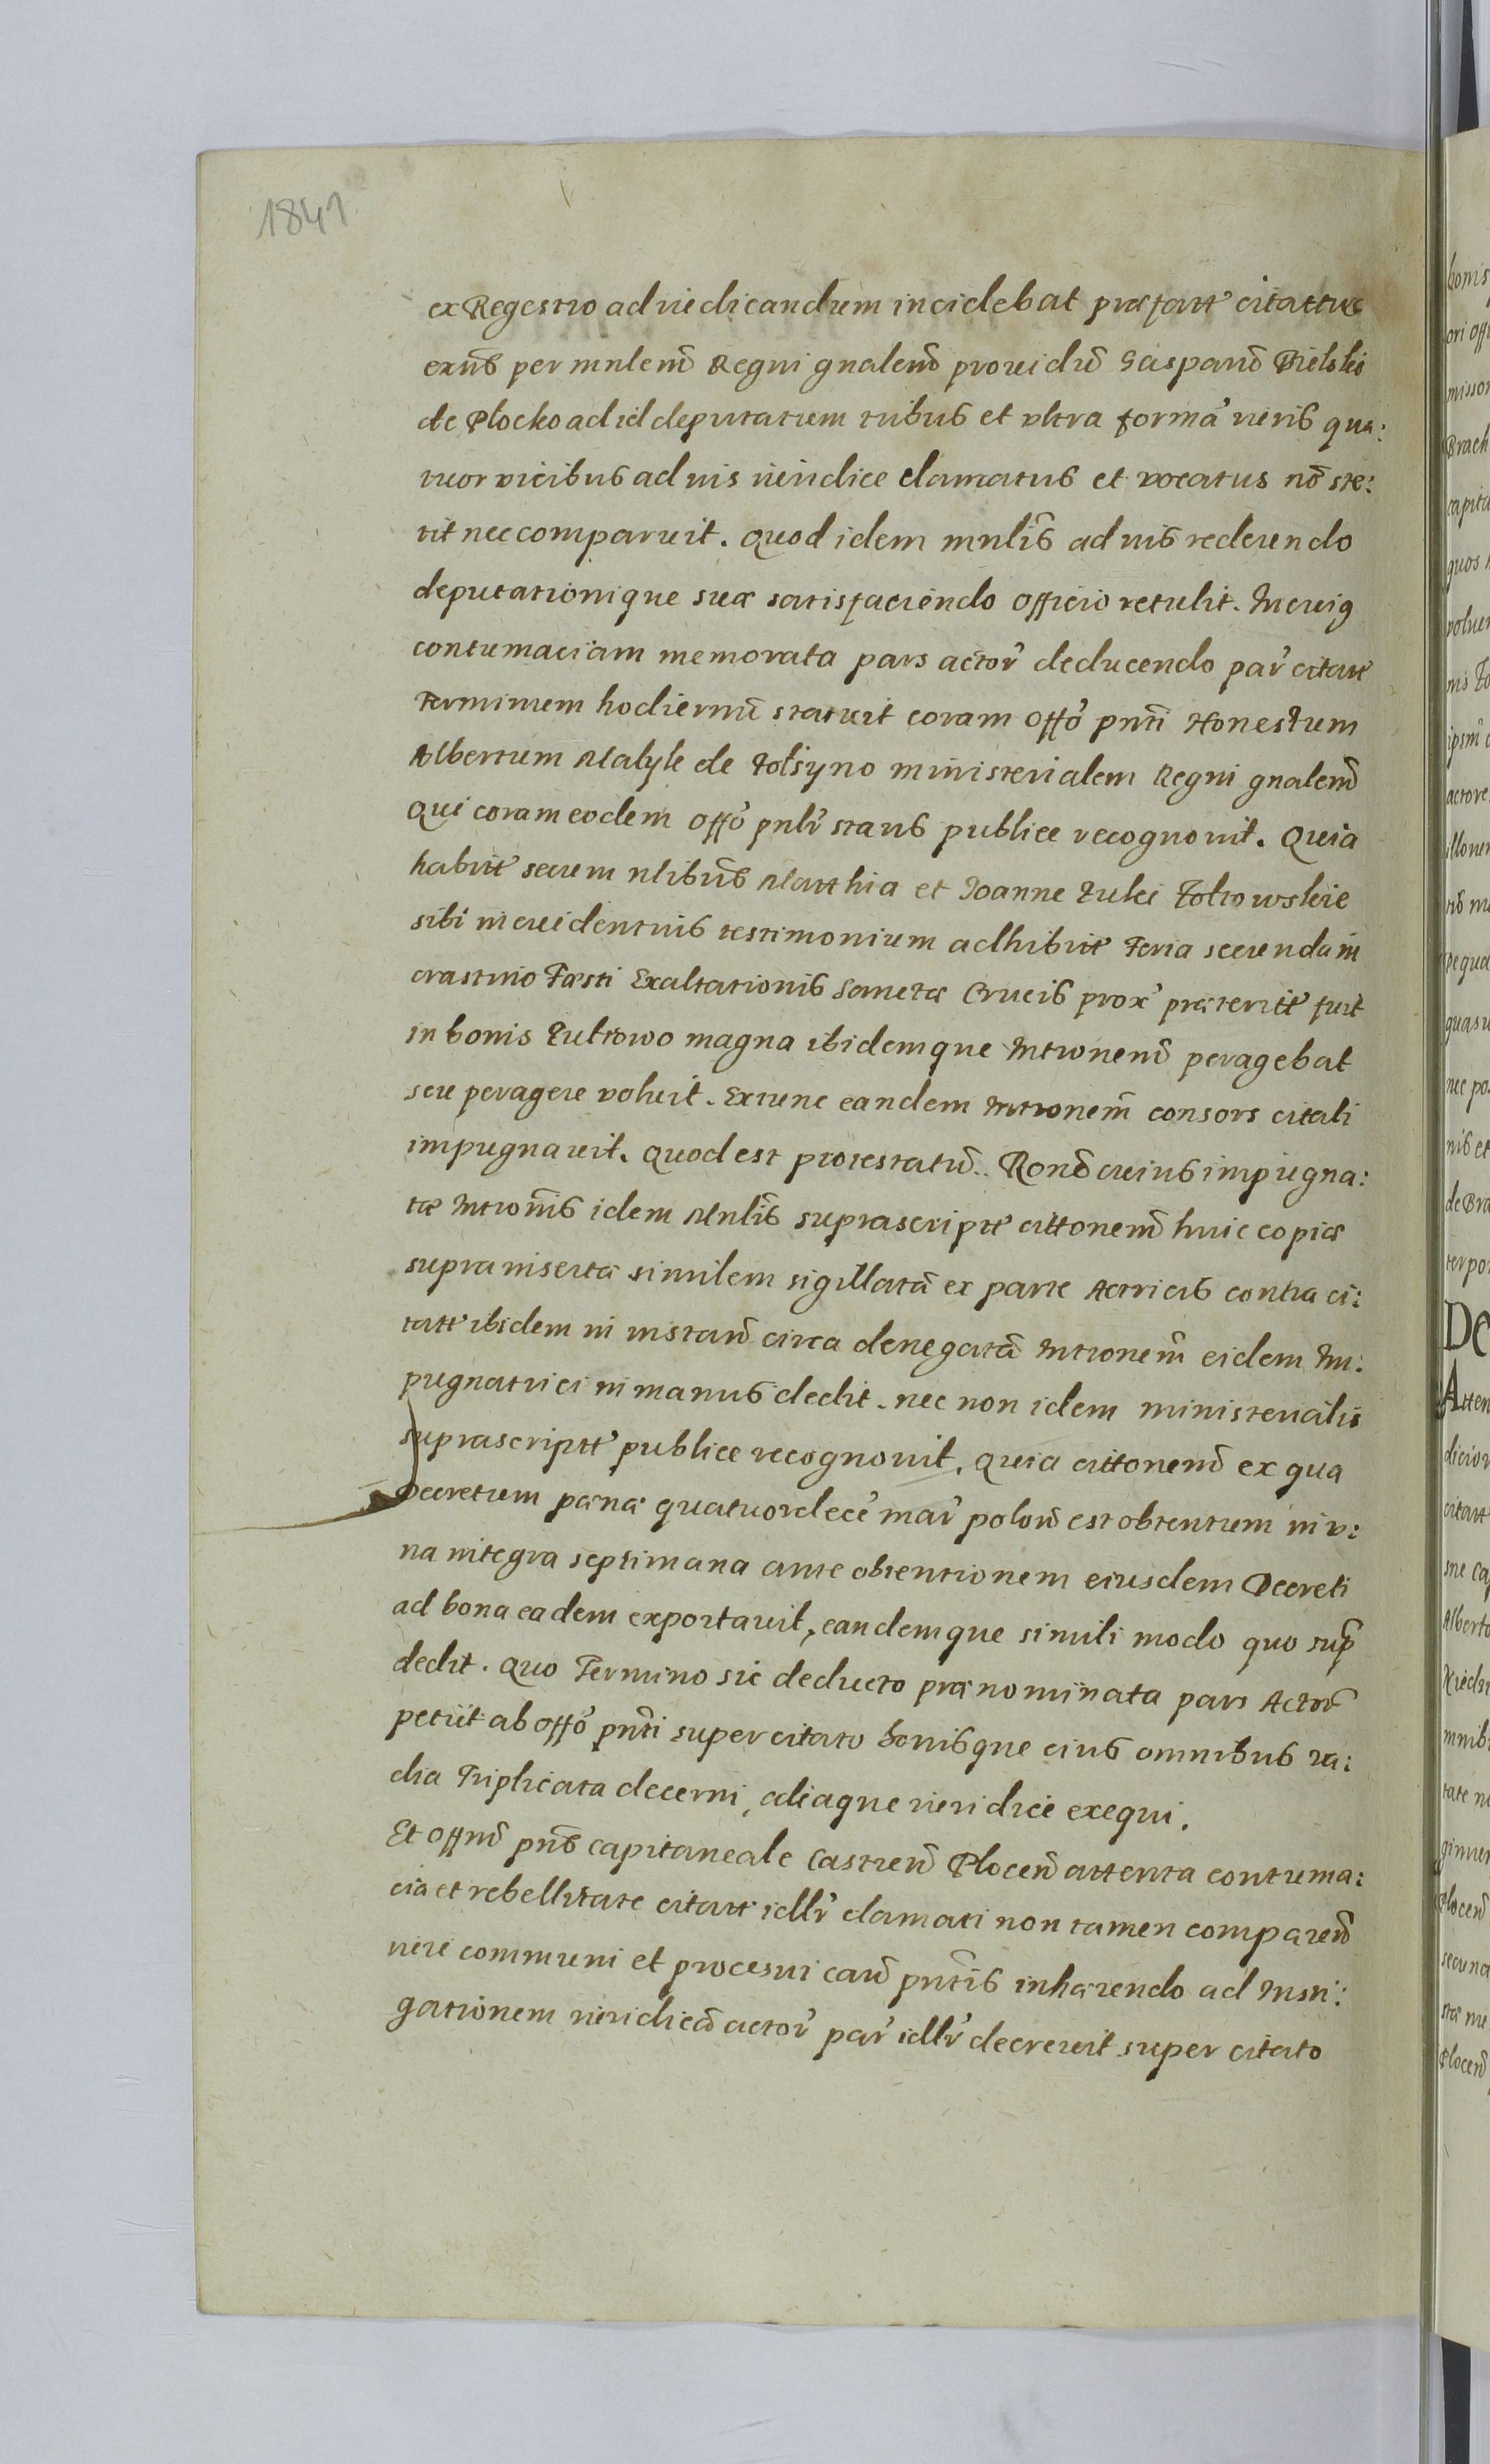 1841
ex Regestro ad iudicandum incidebat præfatt citattus
exñs per mnlem̃ Regni gnalem̃ prouidũ Gasparũ Bielski
de Plocko ad id deputatum tribus et vltra formã iuris qua:
tuor vicibus ad uis iuridice clamatus et vocatus nõ ste:
tit nec comparuit. Quod idem mnlis̃ ad uis redeundo
deputationique suæ satisfaciendo officio retulit. In cuiꝰ
contumaciam memorata pars actor̃ deducendo par̃ citatt
Terminum hodiernũ statuit coram offõ pnti Honestum
Albertum Malyk de Tolsyno ministerialem Regni gnalem̃
Qui coram eodem offõ pnlr̃ stans publice recognouit. Quia
habitt secum nlibũs Matthia et Joanne Tulei Toltowskie
sibi in euidentius testimonium adhibitt Feria secunda in
crastino Fæsti Exaltationis Sanctæ Crucis prox̃ præteritt fuit
in bonis Tultowo magna ibidemque Intronem̃ peragebat
seu peragere voluit. Extunc eandem Intronem̃ consors citati
impugnauit. Quod est protestatũ. Ronẽ cuius impugna:
tæ Intronis̃ idem Mnlis̃ suprascriptt cittonem̃ huic copiæ
supra insertæ similem sigillatã ex parte Actricis contra ci:
tatt ibidem in instañ circa denegatã Intronem̃ eidem Im:
pugnatrici in manus dedit. nec non idem ministerialis
suprascriptt publice recognouit. Quia cittonem̃ ex qua
Decretum pænæ quatuordecẽ mar̃ poloñ est obtentum in v:
na integra septimana ante obtentionem eiusdem Decreti
ad bona eadem exportauit, eandemque simili modo quo sup̃
dedit. Quo Termino sic deducto prænominata pars Actor̃
petiit ab offõ pnti super citato bonisque eius omnibus va:
dia Triplicata decerni, aliaque iuridice exequi.
Et offm̃ pñs capitaneale Castreñ Ploceñ attenta contuma:
cia et rebellitate citatt idlr̃ clamati non tamen compareñ
iure communi et procesui cañ pntis̃ inhærendo ad Insti:
gationem iuridicã actor̃ par̃ idlr̃ decreuit super citato